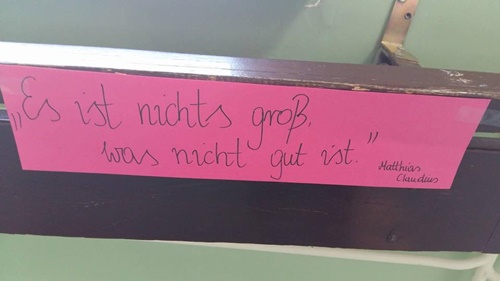 „Es ist nichts groß,
was nicht gut ist.”
Matthias
Claudius